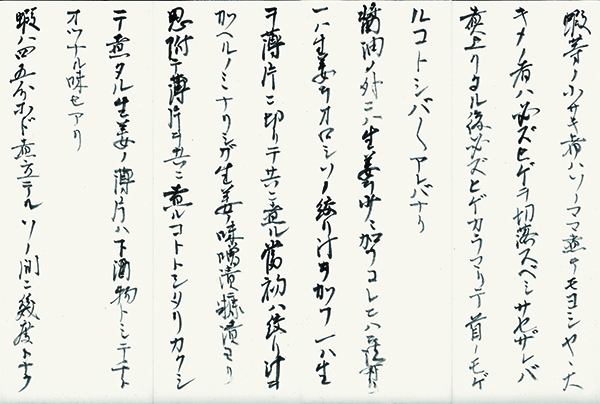 蝦等ノ小サキ者ハソノママ煮テモヨシヤヽ大
キメノ者ハ必ズヒゲヲ切落スベシサセザレバ
煮上リタル後必ズヒゲカラマリテ首ノモゲ
ルコトシバ〱アレバナリ
醤油ノ外ニハ生姜ヲ少シ加フコレニハ二種アリ
一ハ生姜ヲオロシソノ絞リ汁ヲ加フ一ハ生
ヲ薄片ニ切リテ共ニ煮ル當初ハ絞リ汁ヲ
加ヘルノミナリシガ生姜ノ味噌漬糠漬ヨリ
思附テ薄片ヲ共ニ煮ルコトトシタリカクシ
テ煮タル生姜ノ薄片ハ下酒物トシテチト
オツナル味セアリ
蝦ノ四五分ホド煮立テルソノ間ニ幾度トナク